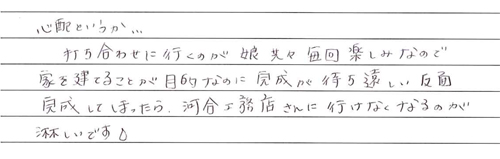 心配というか…
打ち合わせに行くのが 娘共々 毎回 楽しみなので
家を建てることが目的なのに 完成が待ち遠しい反面
完成してしまったら、河合工務店さんに行けなくなるのが
淋しいです